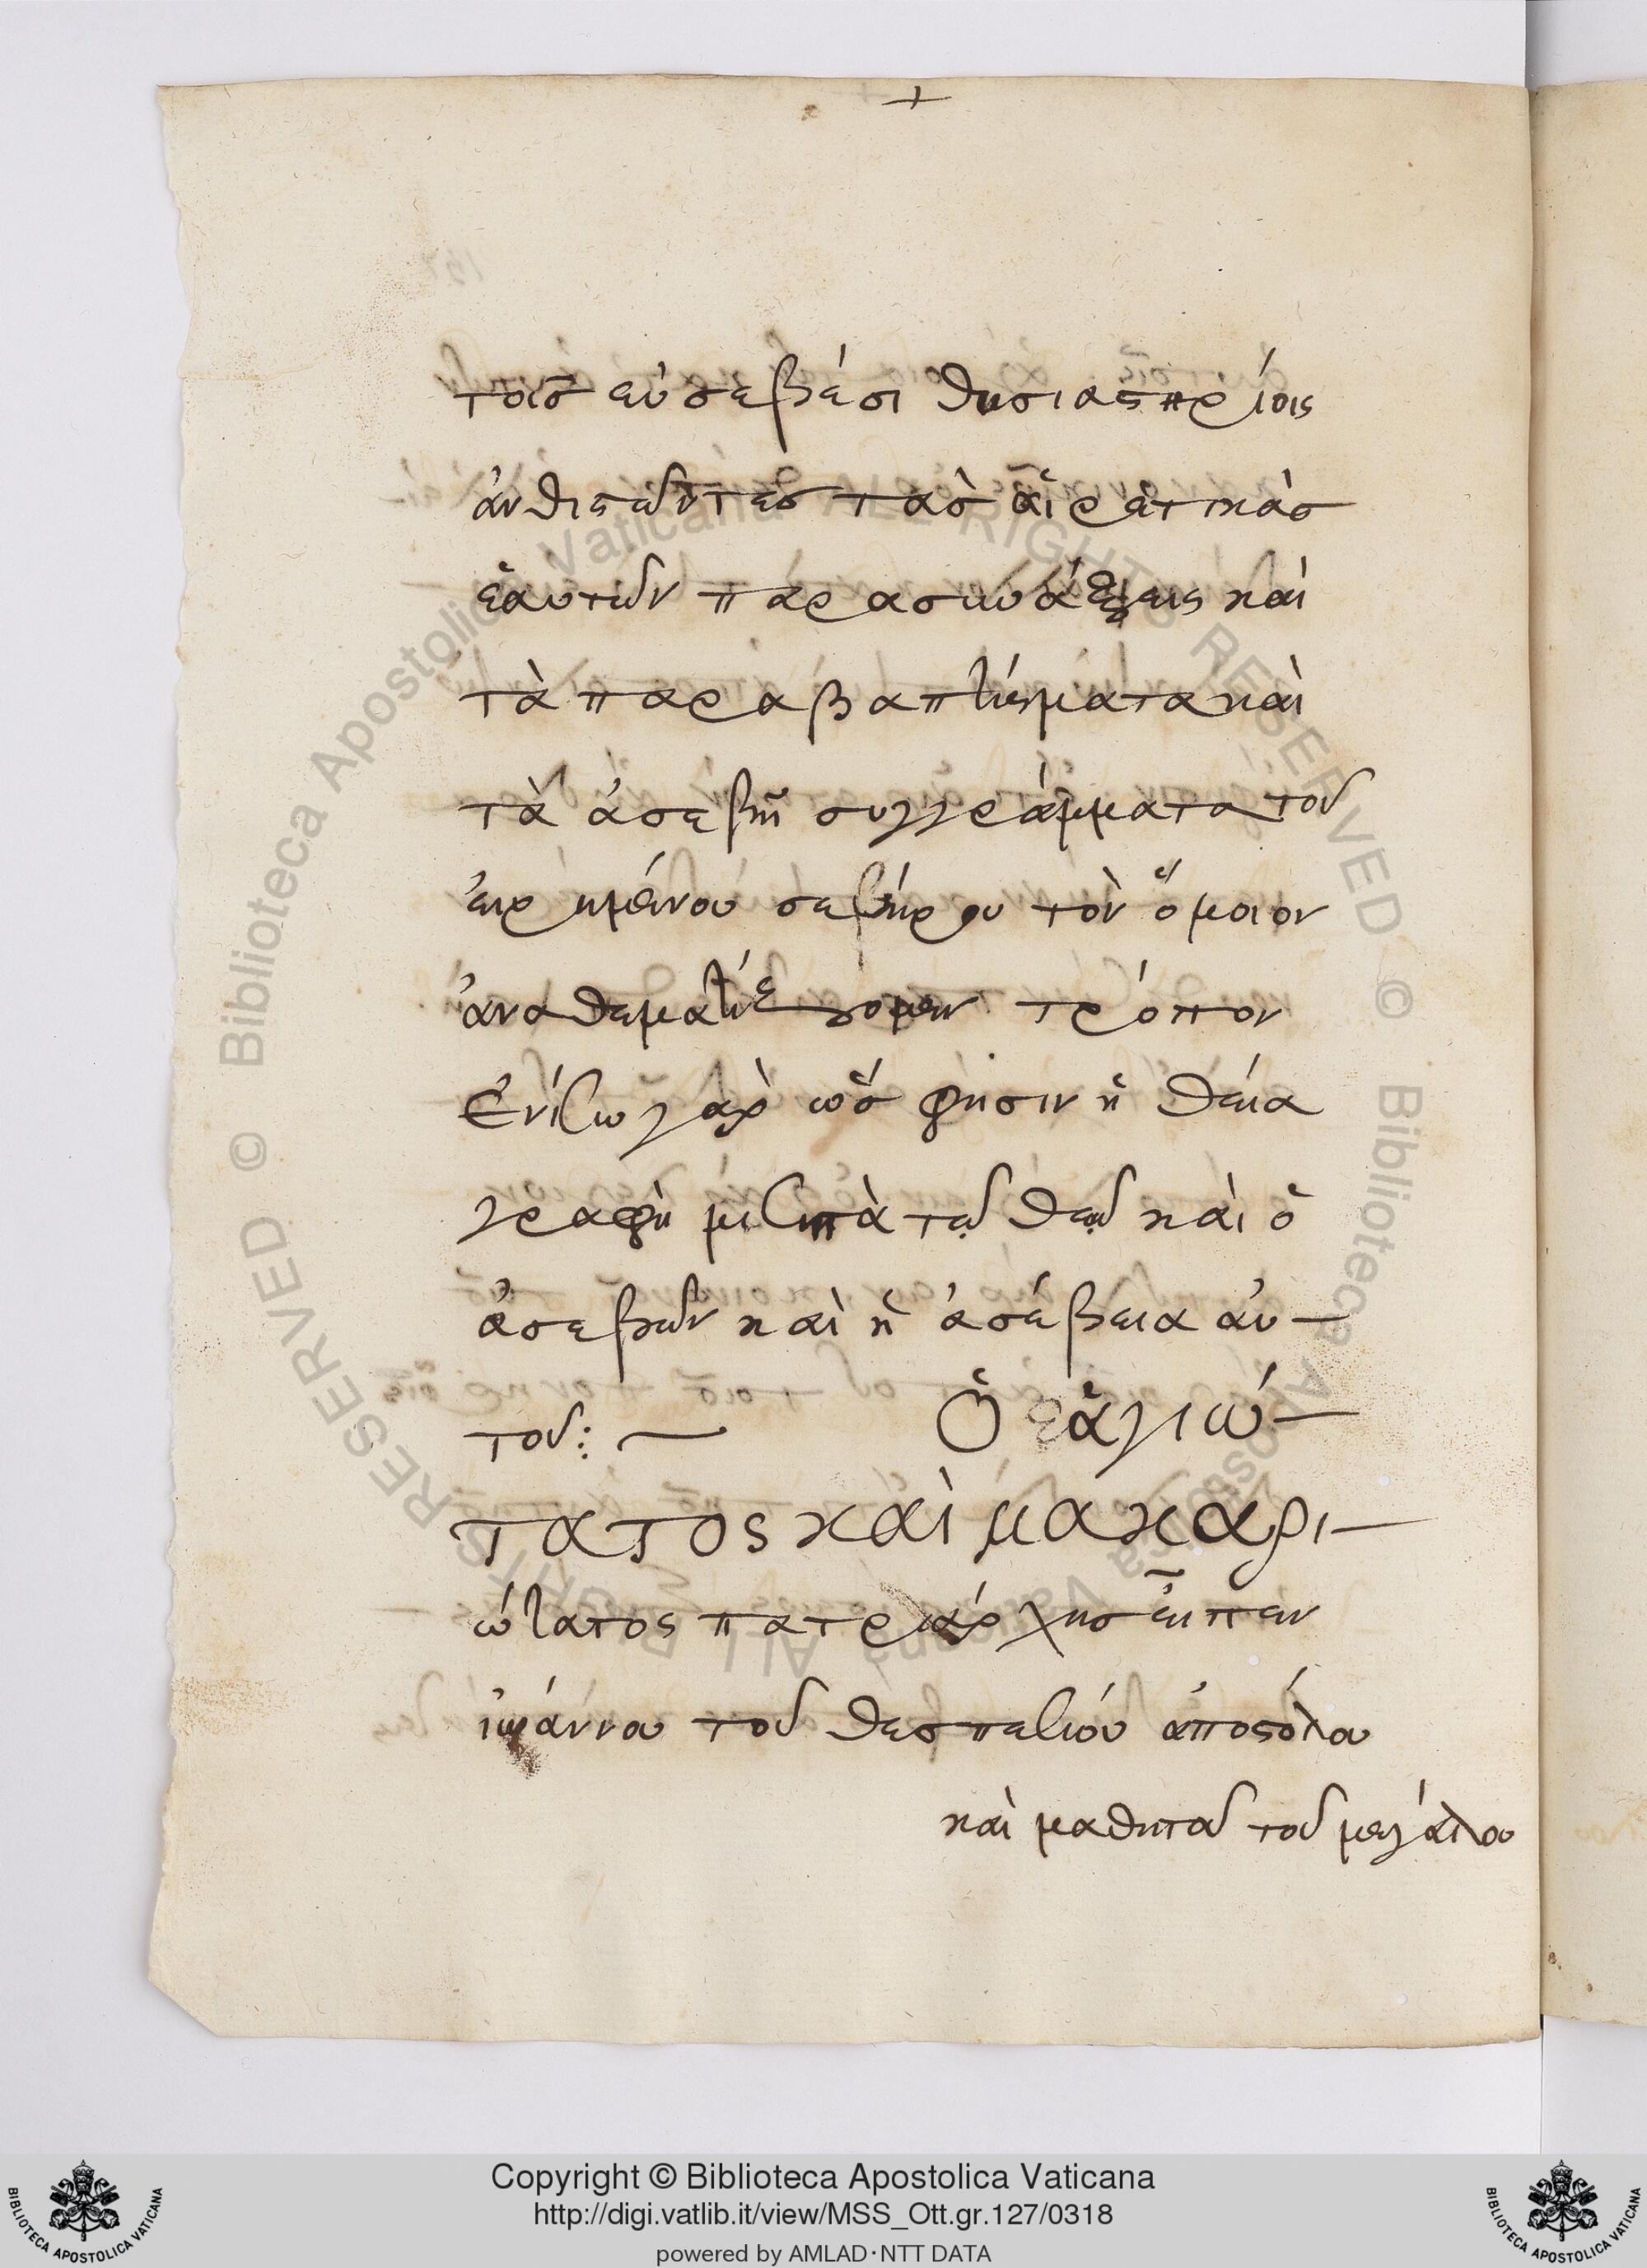 +
τοῖσ εὐσεβέσι θυσιαστηρίοις
ἀνθιστῶντεσ τὰσ αἱρετικὰσ
ἑαυτῶν παρασυνάξεις καὶ
τὰ παραβαπτίσματα καὶ
τὰ ἀσεβῆ συγγράμματα τοῦ
εἰρημένου σεβήρου τὸν ὅμοιον
ἀναθεματίζομεν τρόπον
Ἐνίσω γὰρ ὥσ φησιν ἡ θεία
γραφὴ μισητὰ τῷ θεῷ καὶ ὁ
ἀσεβῶν καὶ ἡ ἀσέβεια αὐ-
τοῦ: ~ Ὁ ἁγιώ-
τατος καὶ μακαρι-
ώτατος πατριάρχησ εἶπεν
ἰωάννου τοῦ θεσπεσίου ἀποστόλου
καὶ μαθητοῦ τοῦ μεγάλου
© Biblioteca Apostolica Vaticana ALL RIGHTS RESERVED © Biblioteca Apostolica Vaticana ALL RIGHTS RESERVED
Copyright © Biblioteca Apostolica Vaticana
http://digi.vatlib.it/view/MSS_Ott.gr.127/0318
powered by AMLAD·NTT DATA
BIBLIOTECA APOSTOLICA VATICANA
BIBLIOTECA APOSTOLICA VATICANA